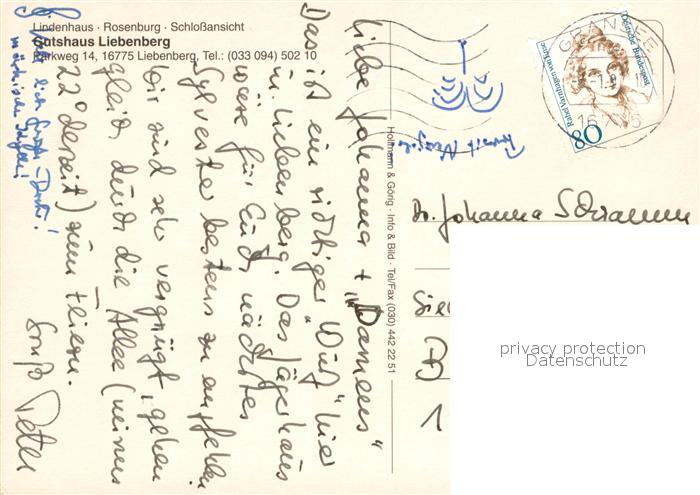 Lindenhaus · Rosenburg · Schloßansicht
Gutshaus Liebenberg
Parkweg 14, 16775 Liebenberg, Tel.: (033 094) 502 10
Liebe Johanna + "Damens"
Das ist ein richtiger "Wurf" hier
in Liebenberg. Das Jägerhaus
wäre für Euch nächstes
Sylvester bestens zu empfehlen.
Wir sind sehr vergnügt, gehen
gleich durch die Allee (minus
22° derzeit) zum Fliesen.
Gruß Peter
Hofmann & Görig · Info & Bild · Tel/Fax (030) 442 22 51
Prosit Neujahr
GRANSEE
Deutsche Bundespost
Rahel Varnhagen von Ense
80
Dr. Johanna Schramm
D
1
privacy protection
Datenschutz